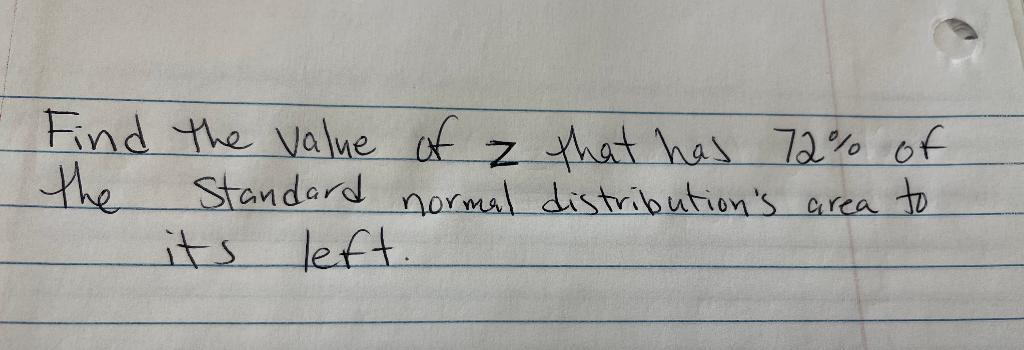 Find the value of z that has 72% of
the standard normal distribution's area to
its left.